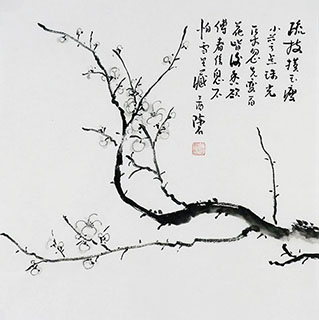 疏枝橫玉瘦
小萼点珠光
一朵忽先變百
花皆後香欲
傳春信息不
怕雪里藏